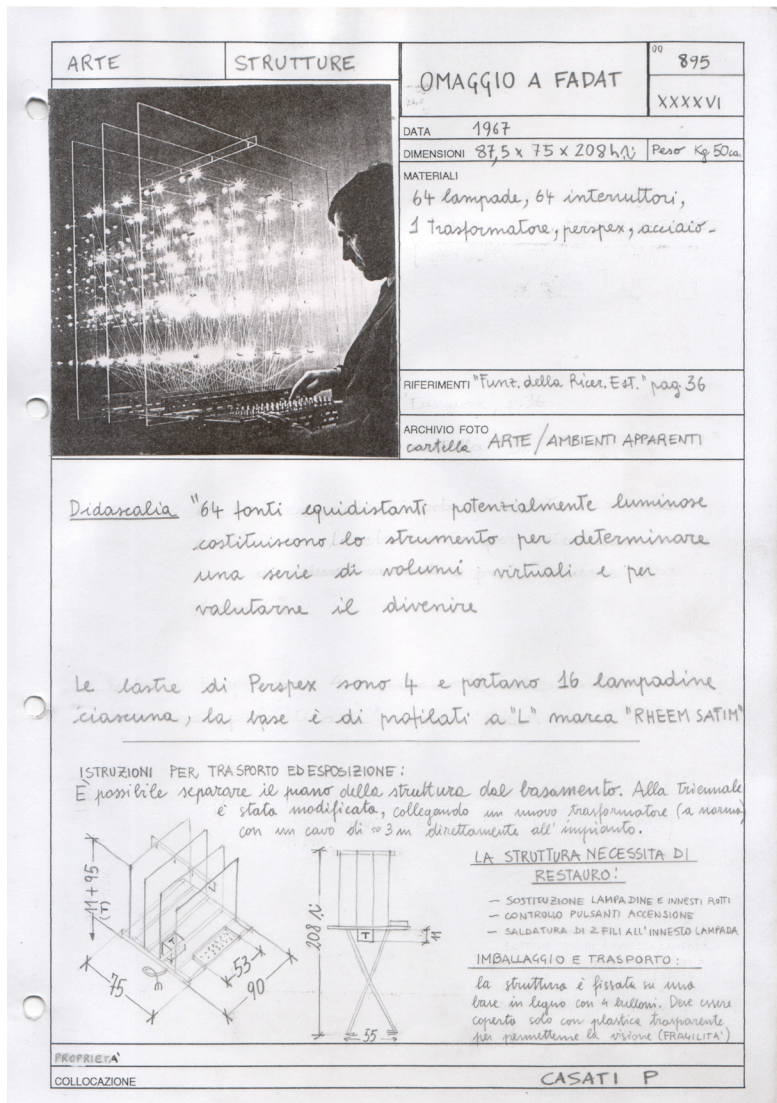 ARTE
STRUTTURE
OMAGGIO A FADAT
895
XXXXVI
DATA 1967
DIMENSIONI 87,5 x 75 x 208 h
Peso Kg 50 ca.
MATERIALI
64 lampade, 64 interruttori,
1 Trasformatore, perspex, acciaio -
RIFERIMENTI "Funz. della Ricer. Est." pag. 36
ARCHIVIO FOTO
cartella ARTE/AMBIENTI APPARENTI
Didascalia "64 fonti equidistanti potenzialmente luminose
costituiscono lo strumento per determinare
una serie di volumi virtuali e per
valutarne il divenire
Le lastre di Perspex sono 4 e portano 16 lampadine
ciascuna, la base è di profilati a "L" marca "RHEEM SATIM"
ISTRUZIONI PER TRASPORTO ED ESPOSIZIONE:
È possibile separare il piano della struttura dal basamento. Alla Triennale
è stata modificata, collegando un nuovo trasformatore (a norma)
con un cavo di ≈ 3 m direttamente all'impianto.
11 + 95
(T)
T
75
53
90
208 h
T
11
55
LA STRUTTURA NECESSITA DI
RESTAURO:
- SOSTITUZIONE LAMPADINE E INNESTI ROTTI
- CONTROLLO PULSANTI ACCENSIONE
- SALDATURA DI 2 FILI ALL'INNESTO LAMPADA
IMBALLAGGIO E TRASPORTO:
la struttura è fissata su una
base in legno con 4 bulloni. Deve essere
coperta solo con plastica trasparente
per permetterne la visione (FRAGILITA')
PROPRIETA'
COLLOCAZIONE
CASATI P